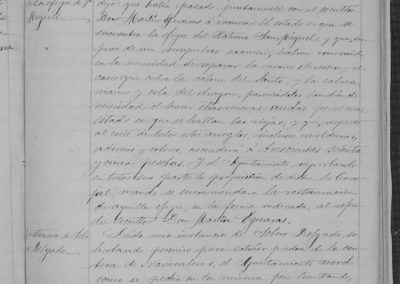 dijo: que había pasado juntamente con el escultor
Don Martín a reconocer el estado en que se
encuentra la efigie del Patrono San Miguel, y que, des-
pues de un escrupuloso examen, habían convenido
en la necesidad de reparar la mano derecha, y el
casco que cubre la cabeza del Santo, y la cabeza,
mano y cola del dragon, pareciéndoles también de
necesidad el hacer otras nuevas andas por el mal
estado en que se hallan las viejas; y que, respecto
al coste de todos estos arreglos, inclusos molduras,
adornos y colores, ascenderá a trescientas setenta
y cinco pesetas. Y el Ayuntamiento, aprobando
en todas sus partes la proposicion de dicho Sr. Conce-
jal, mandó se encomendara la restauracion
de aquella efigie, en la forma indicada, al espre-
sado escultor Don Martin
Instancia de Isidro
Delgado.
Leida una instancia de Isidro Delgado, so-
licitando permiso para extraer piedra de la can-
tera de el Ayuntamiento acordó
como se pide en la misma, pero limitando,